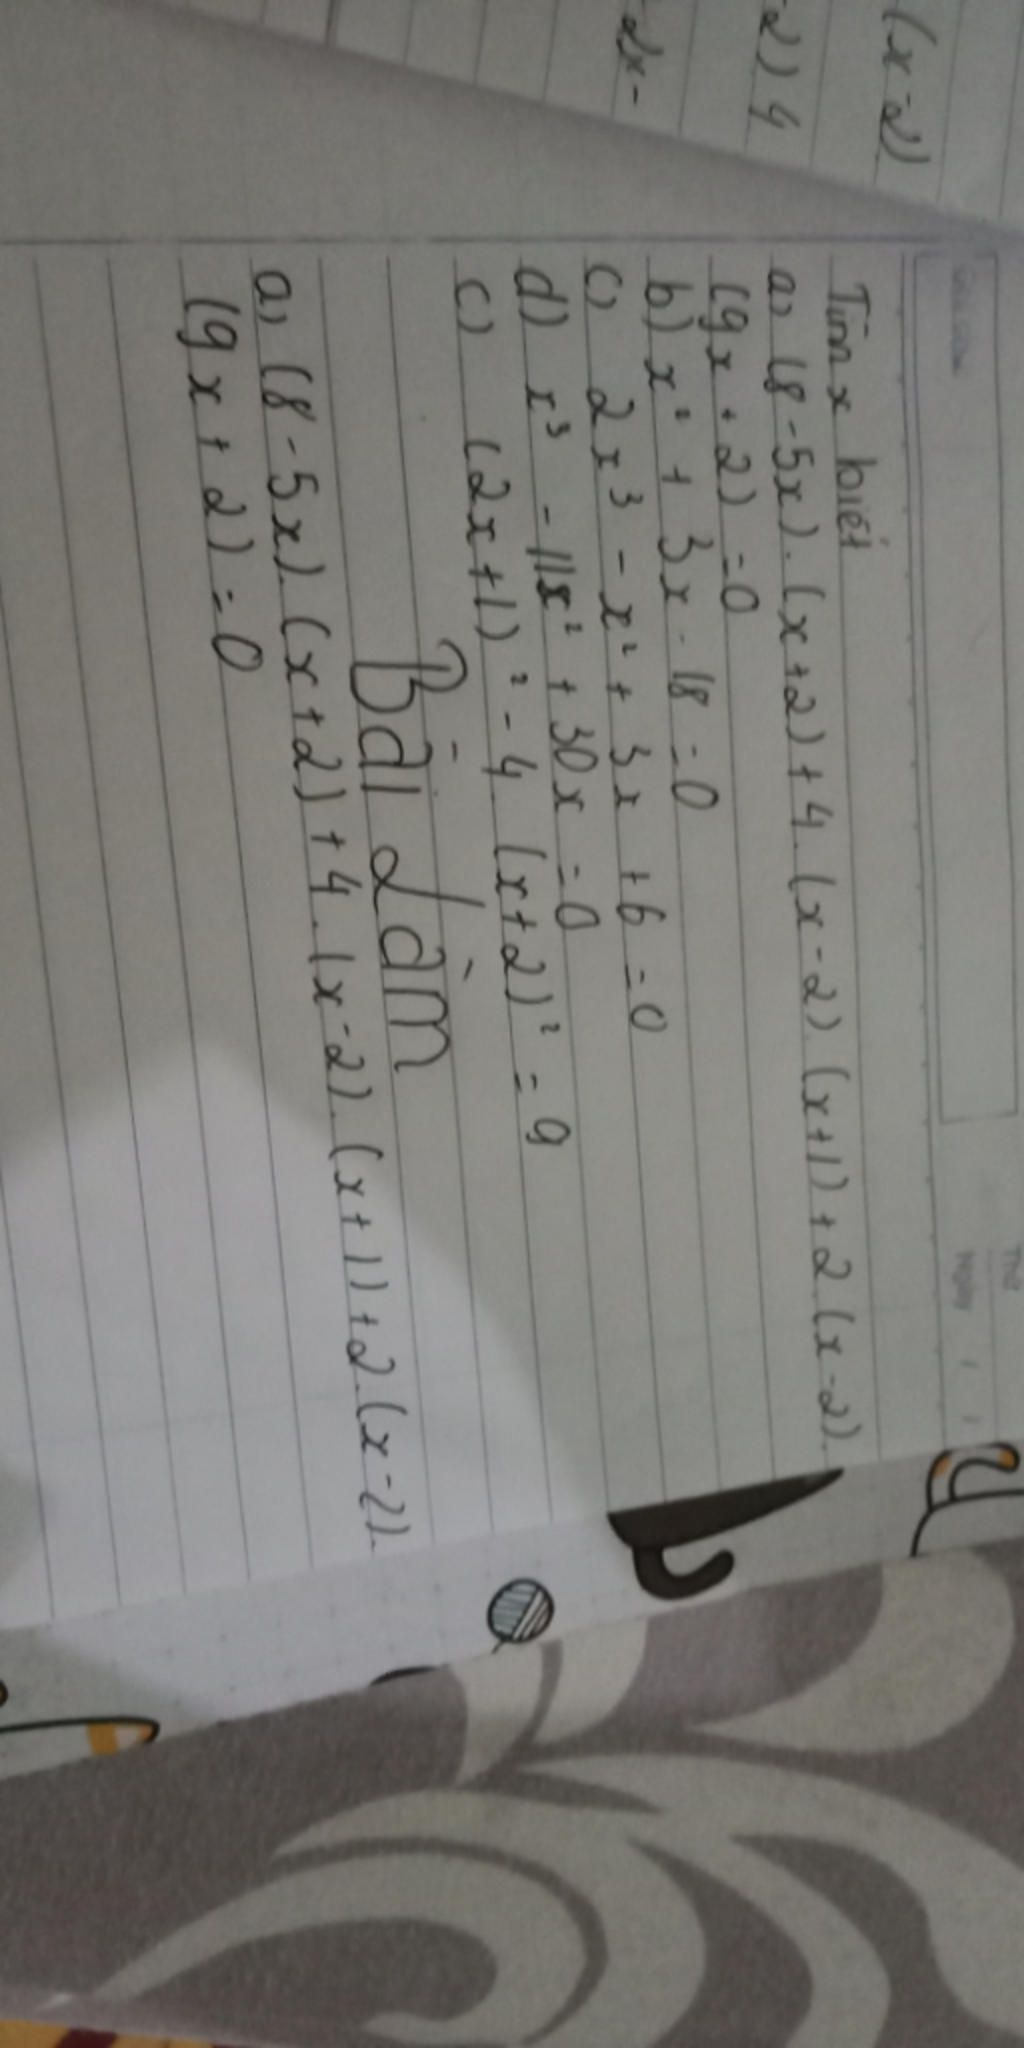 (x-2)
-2) 4
2x-
Thứ
Ngày / /
Tìm x biết
a) (8-5x).(x+2)+4.(x-2).(x+1)+2.(x-2).
(9x+2)=0
b) x² + 3x - 18 = 0
c) 2x³ - x² + 3x + 6 = 0
d) x³ - 11x² + 30x = 0
c) (2x+1)² - 4 (x+2)² = 9
Bài Làm
a) (8-5x).(x+2)+4.(x-2).(x+1)+2.(x-2).
(9x+2)=0